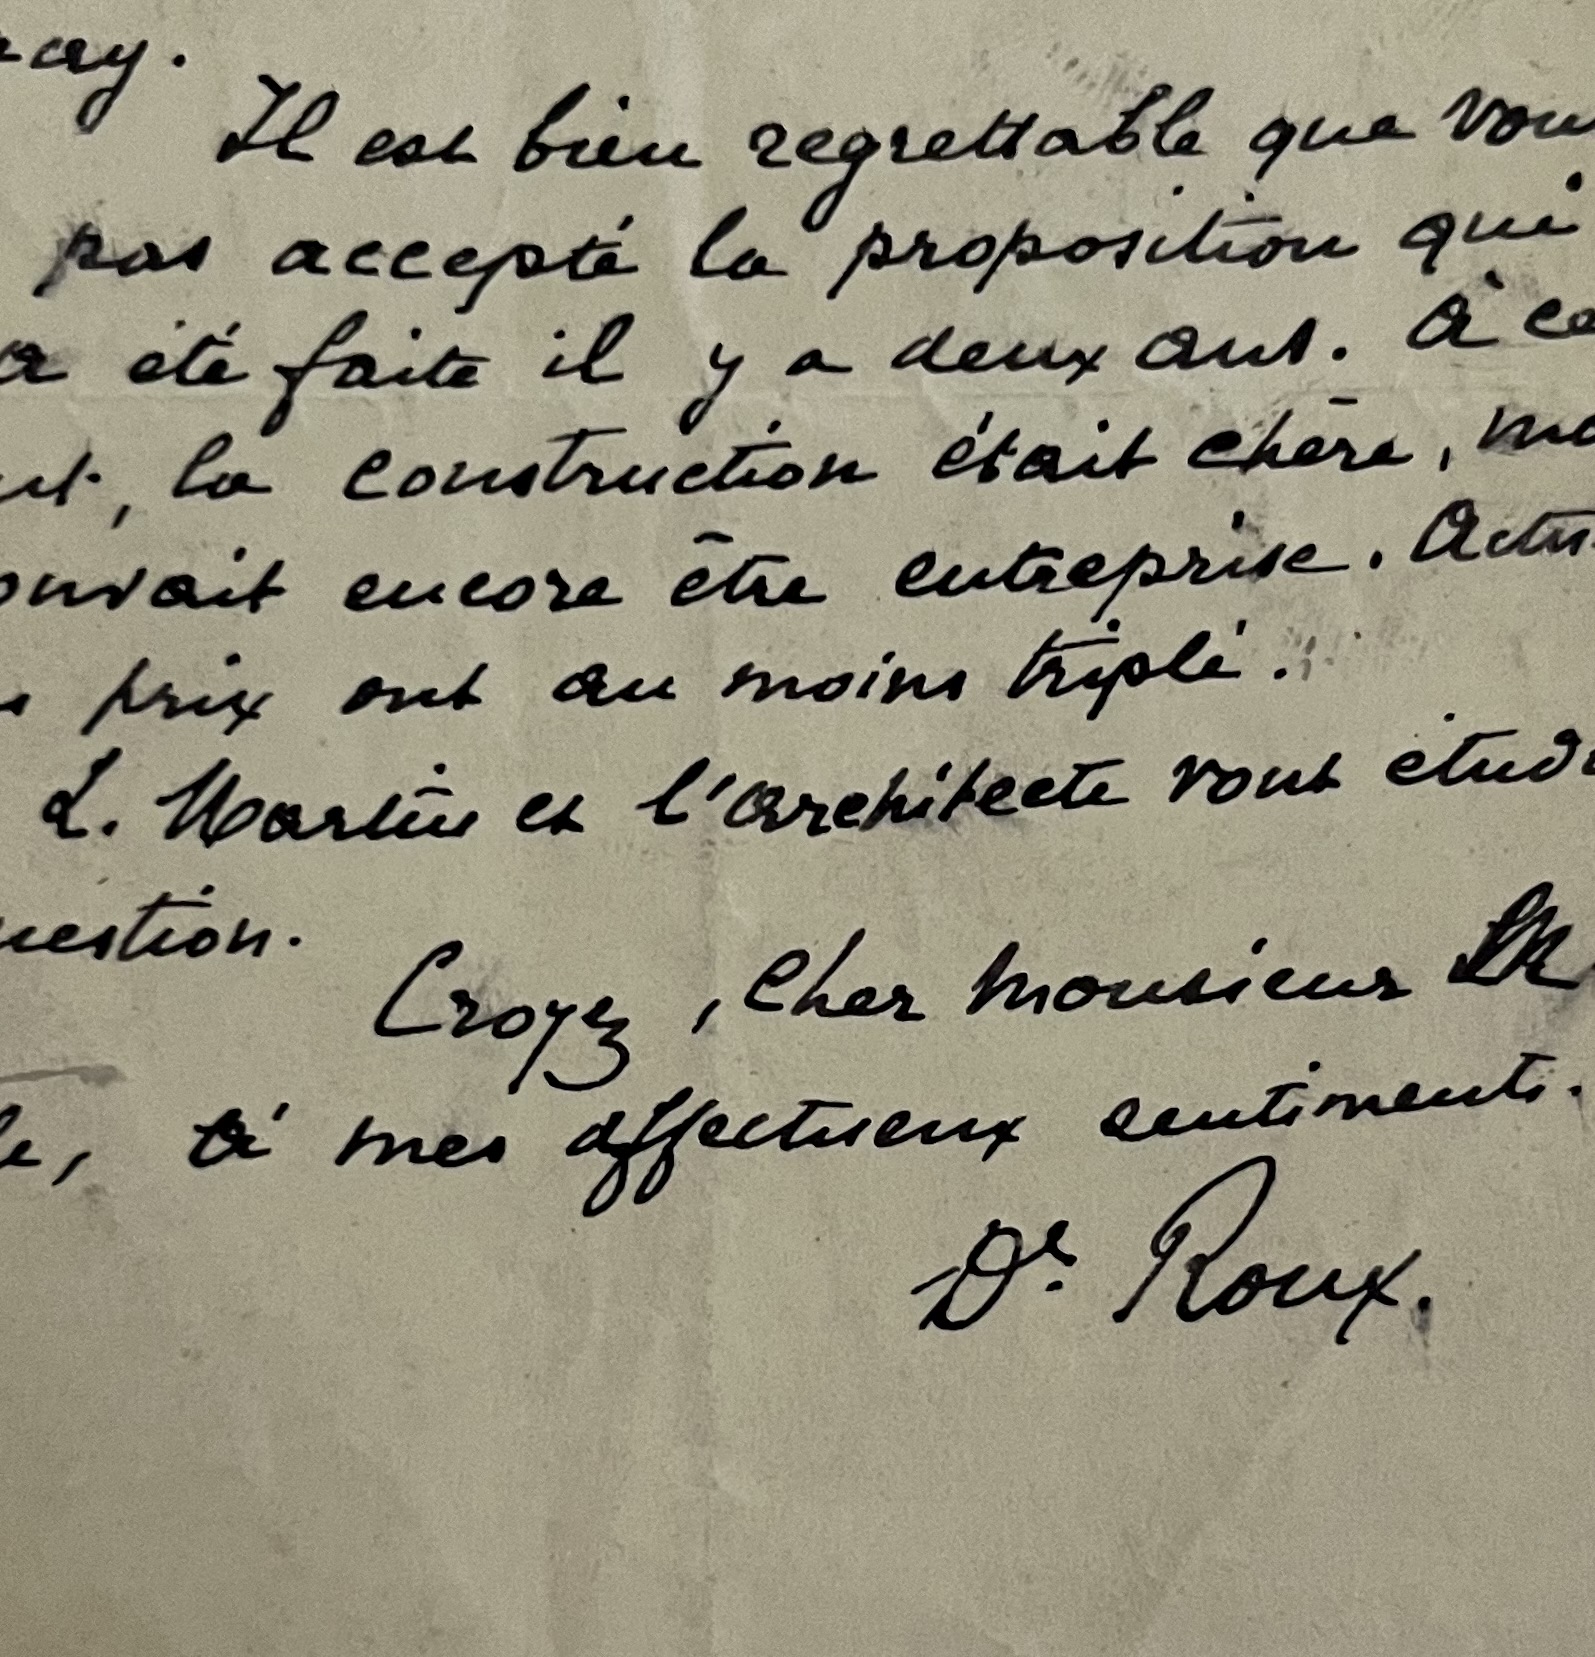 ay.
Il est bien regrettable que vous
pas accepté la proposition qui
a été faite il y a deux ans. À ce
, la construction était chère, ma
ouvait encore être entreprise. Actu
prix ont au moins triplé.
L. Martin et l'architecte vont étudi
uestion.
Croyez, cher Monsieur
le, à mes affectueux sentiments.
Dr. Roux.